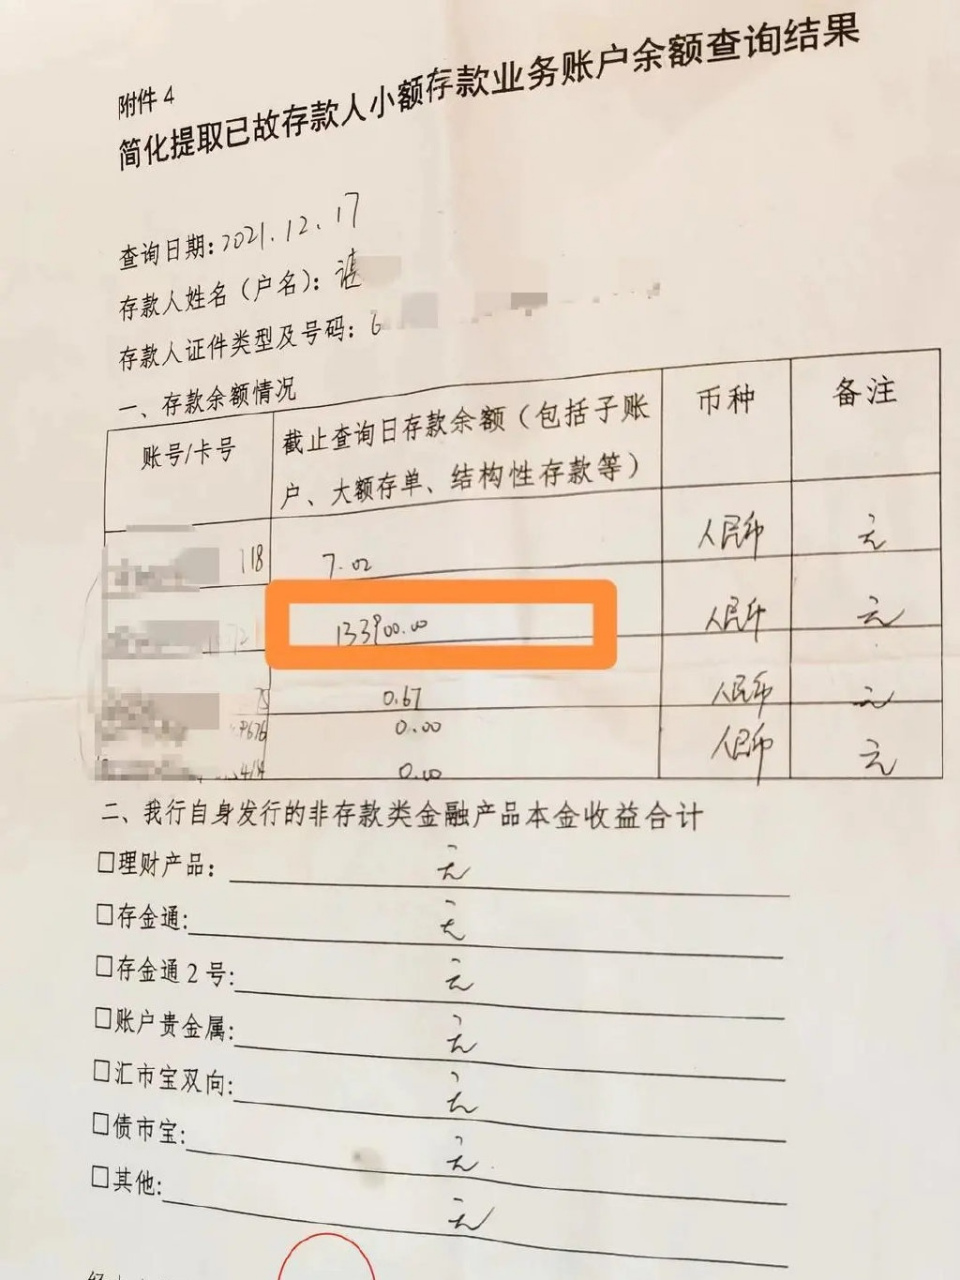 附件 4
简化提取已故存款人小额存款业务账户余额查询结果
查询日期: 2021.12.17
存款人姓名（户名）: 谌
存款人证件类型及号码: 6
一、存款余额情况
账号/卡号 截止查询日存款余额（包括子账户、大额存单、结构性存款等） 币种 备注
118 7.02 人民币 元
133900.00 人民币 元
75 0.67 人民币 元
9676 0.00 人民币 元
414 0.00
二、我行自身发行的非存款类金融产品本金收益合计
□理财产品: 元
□存金通: 元
□存金通2号: 元
□账户贵金属: 元
□汇市宝双向: 元
□债市宝: 元
□其他: 元